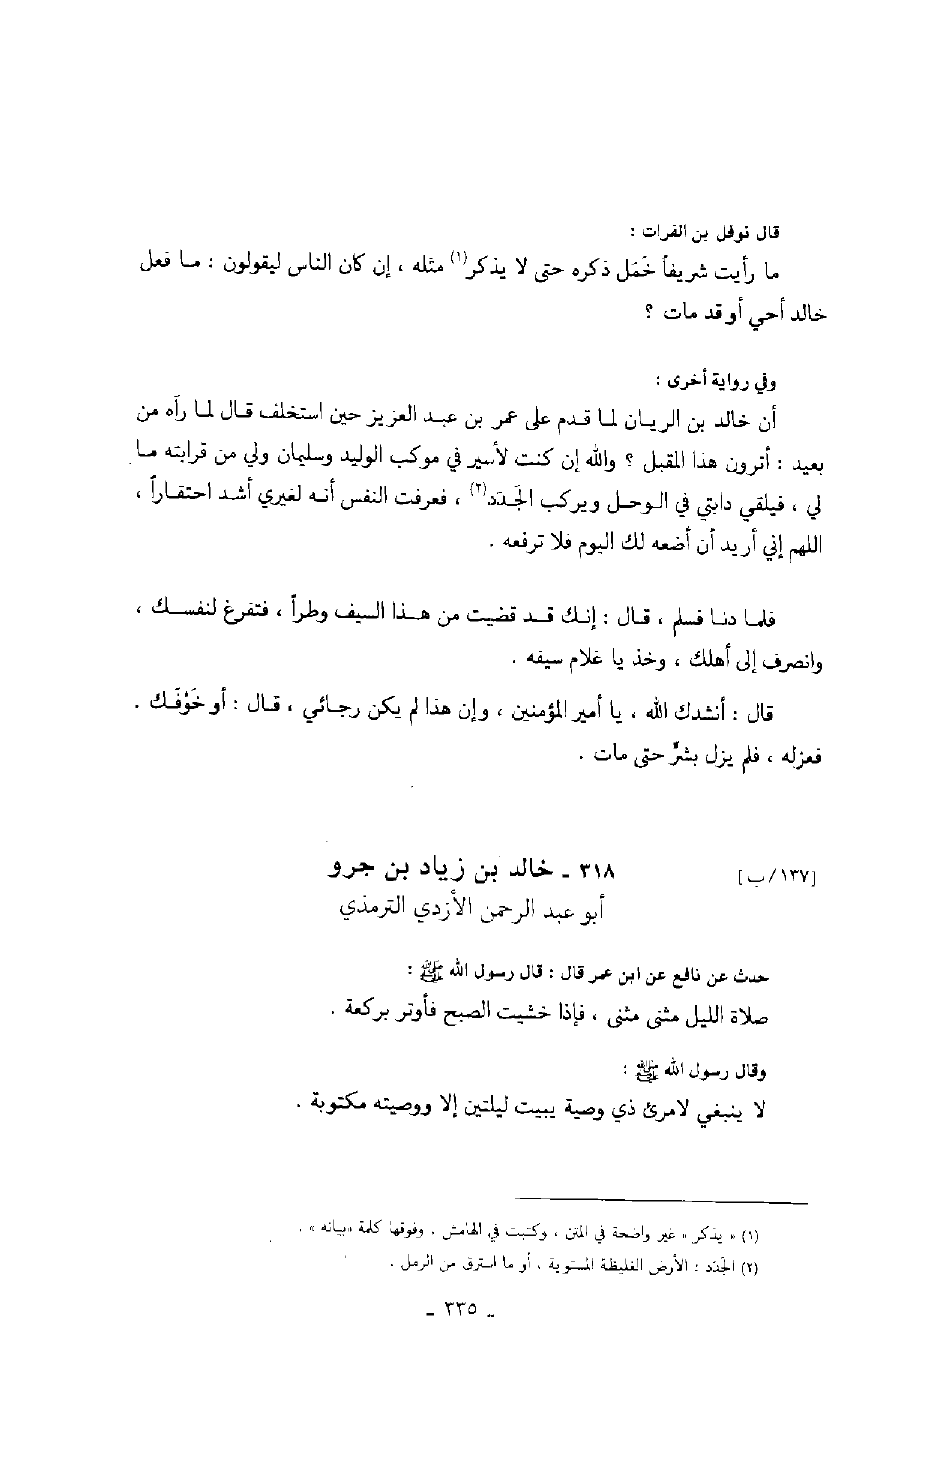 قال نوفل بن الفرات :
ما رأيت شريفاً خَمَل ذكره حتى لا يذكر(١) مثله ، إن كان الناس ليقولون : ما فعل
خالد أحي أو قد مات ؟
وفي رواية أخرى :
أن خالد بن الريان لما قدم على عمر بن عبد العزيز حين استخلف قال لما رآه من
بعيد : أترون هذا المقبل ؟ والله إن كنت لأسير في موكب الوليد وسليمان ولي من قرابته ما
لي ، فيلقي دابتي في الوحل ويركب الجَدَد(٢) ، فعرفت النفس أنه لغيري أشد احتقاراً ،
اللهم إني أريد أن أضعه لك اليوم فلا ترفعه .
فلما دنا فسلم ، قال : إنك قد قضيت من هذا السيف وطراً ، فتفرغ لنفسك ،
وانصرف إلى أهلك ، وخذ يا غلام سيفه .
قال : أنشدك الله ، يا أمير المؤمنين ، وإن هذا لم يكن رجائي ، قال : أو خَوْفَك .
فعزله ، فلم يزل بشرٍّ حتى مات .
[١٣٧/ب] ٣١٨ ـ خالد بن زياد بن جرو
أبو عبد الرحمن الأزدي الترمذي
حدث عن نافع عن ابن عمر قال : قال رسول الله ﷺ :
صلاة الليل مثنى مثنى ، فإذا خشيت الصبح فأوتر بركعة .
وقال رسول الله ﷺ :
لا ينبغي لامرئ ذي وصية يبيت ليلتين إلا ووصيته مكتوبة .
(١) « يذكر » غير واضحة في المتن ، وكتبت في الهامش . وفوقها كلمة «بيانه» .
(٢) الجَدَد : الأرض الغليظة المستوية ، أو ما استرق من الرمل .
ـ ٣٣٥ ـ